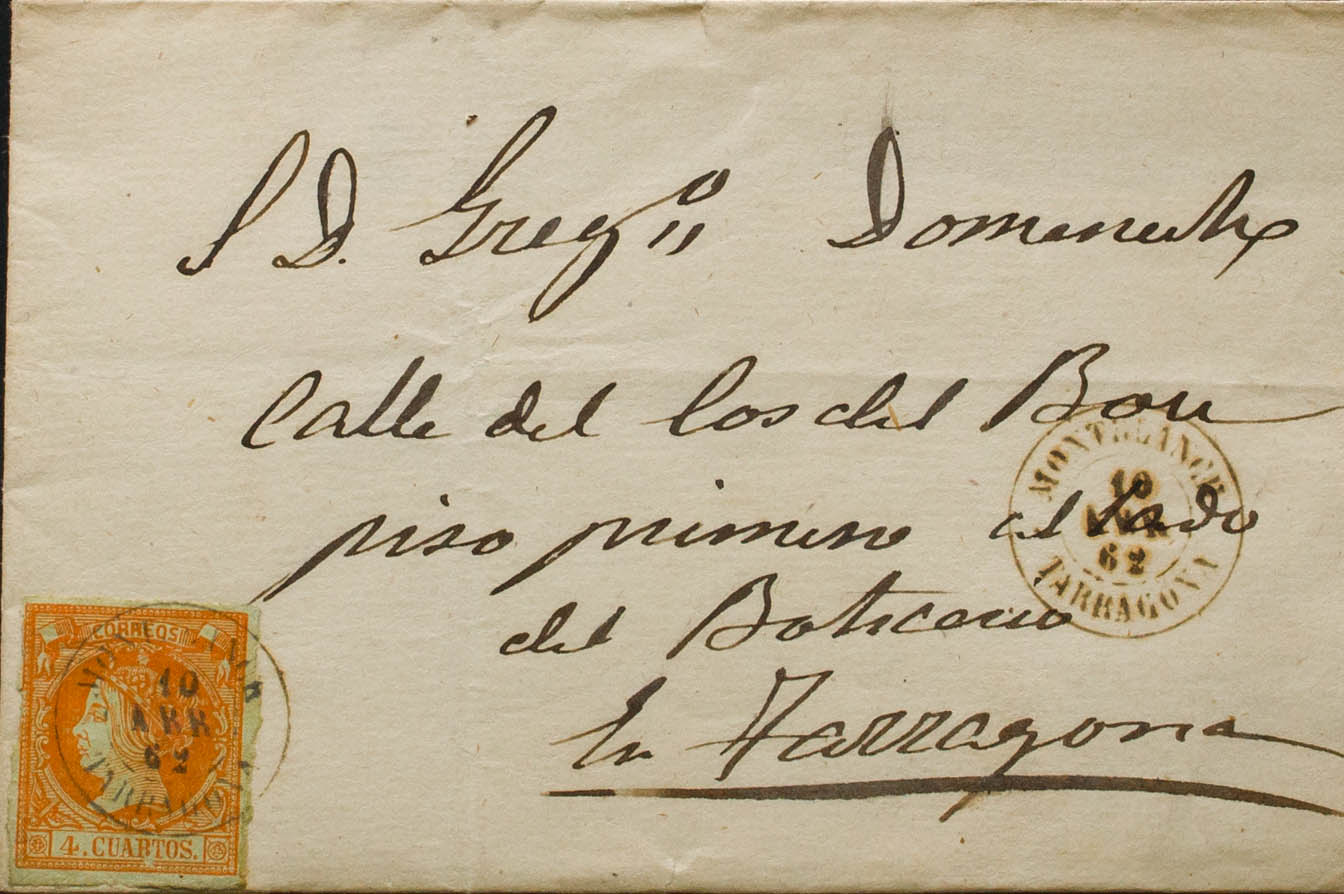 S D. Greg.º Domenech
Calle del Cos del Bou
piso primero al lado
del Boticario
En Tarragona
MONTBLANCH
10
ABR
62
TARRAGONA
CORREOS
10
ABR
62
TARRAGONA
4. CUARTOS.